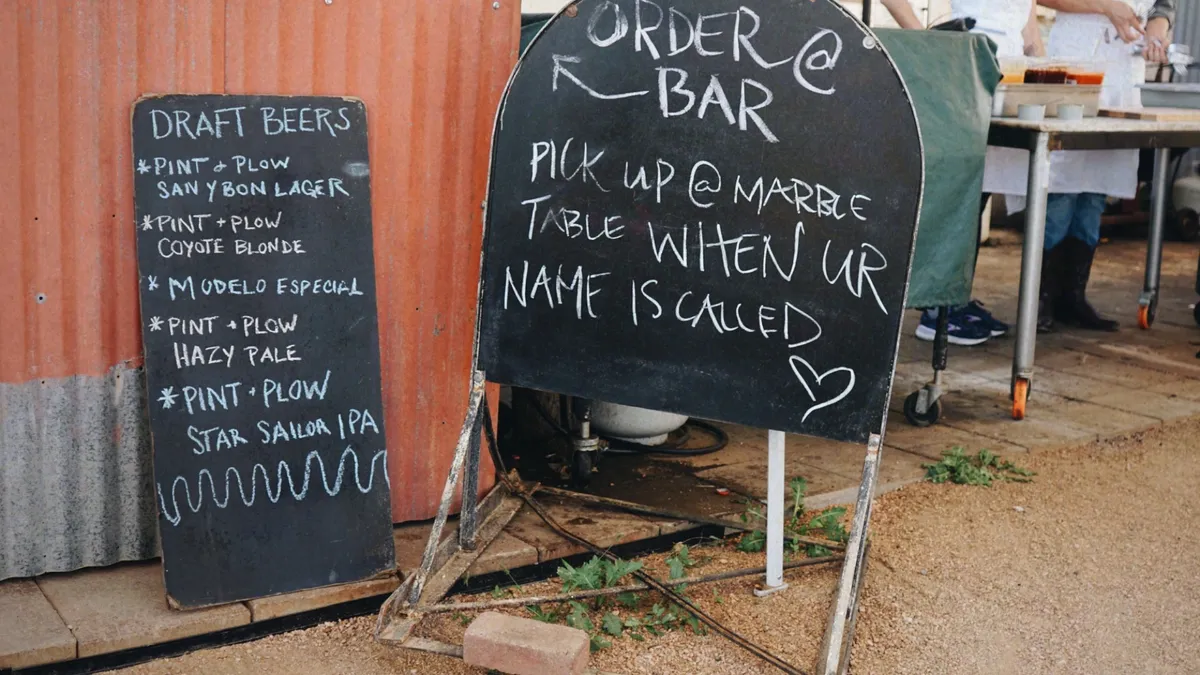 DRAFT BEERS
*PINT + PLOW
SAN YBON LAGER
*PINT + PLOW
COYOTE BLONDE
* MODELO ESPECIAL
*PINT + PLOW
HAZY PALE
*PINT + PLOW
STAR SAILOR IPA
ORDER @
BAR
PICK UP @ MARBLE
TABLE WHEN UR
NAME IS CALLED